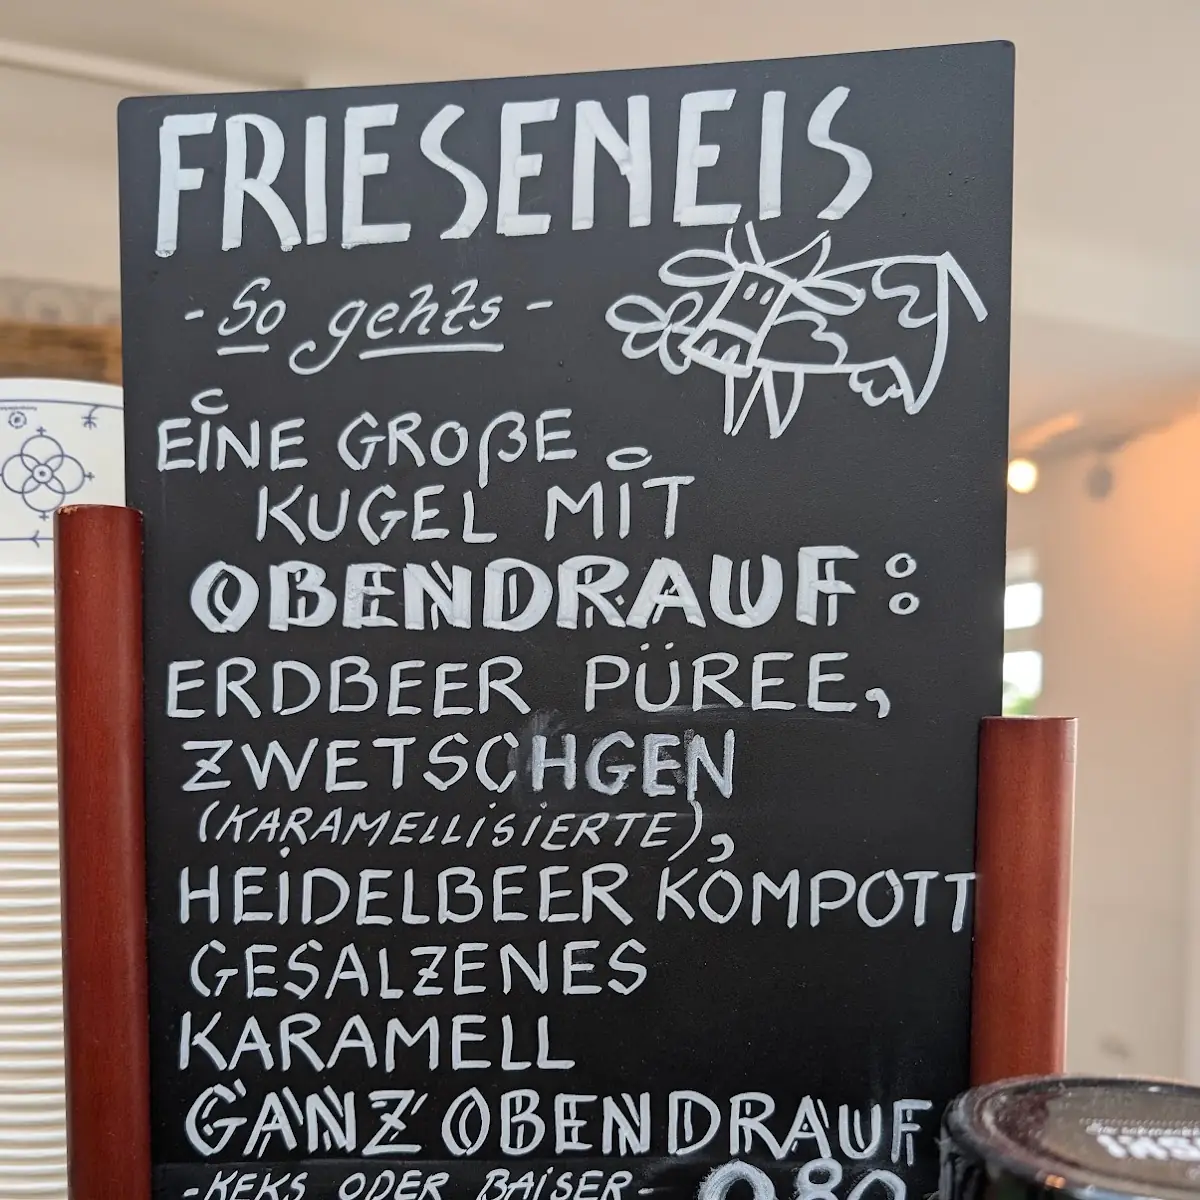 FRIESENEIS
- So gehts -
EINE GROßE
KUGEL MIT
OBENDRAUF:
ERDBEER PÜREE,
ZWETSCHGEN
(KARAMELLISIERTE),
HEIDELBEER KOMPOTT
GESALZENES
KARAMELL
GANZ OBENDRAUF
-KEKS ODER BAISER- 0,80